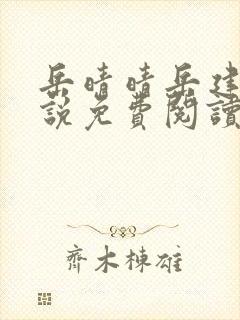 岳晴晴岳建
說免費閱讀
齊木棟雄